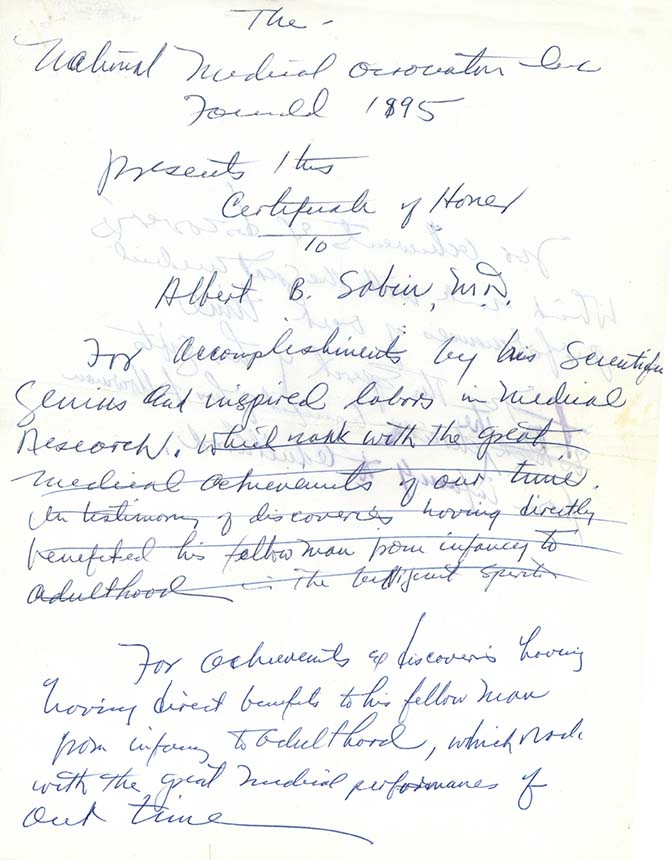 The -
National Medical Association Inc
Founded 1895
presents this
Certificate of Honor
to
Albert B. Sabin, M.D.
For accomplishments by his Scientific
Genius and inspired labors in Medical
Research. Which rank with the great
Medical achievements of our time.
In testimony of discoveries having directly
benefited his fellow man from infancy to
adulthood in the spirit
For achievements & discoveries having
having direct benefits to his fellow man
from infancy to adulthood, which rank
with the great Medical performances of
our time